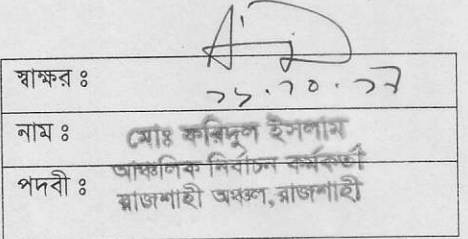 স্বাক্ষর ঃ
নাম ঃ মোঃ ফরিদুল ইসলাম
আঞ্চলিক নির্বাচন কর্মকর্তা
পদবী ঃ রাজশাহী অঞ্চল, রাজশাহী